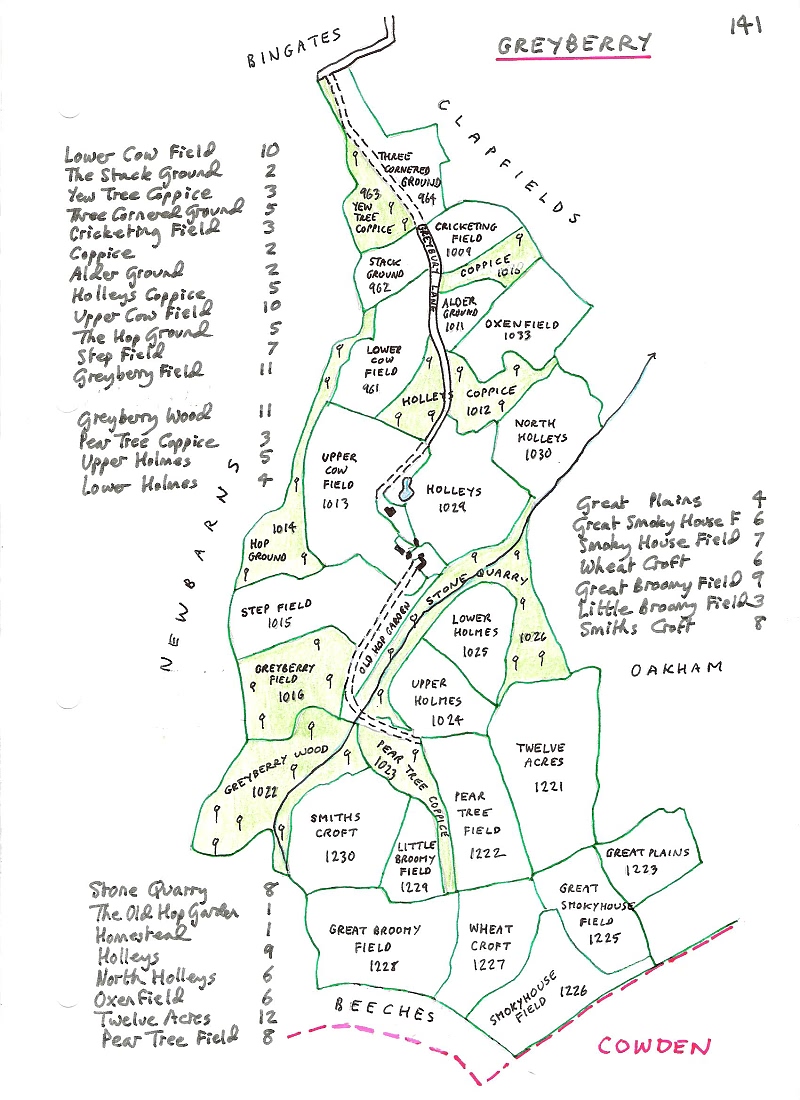 141
GREYBERRY
BINGATES
CLAPFIELDS
Lower Cow Field 10
The Stack Ground 2
Yew Tree Coppice 3
Three Cornered Ground 5
Cricketing Field 3
Coppice 2
Alder Ground 2
Holleys Coppice 5
Upper Cow Field 10
The Hop Ground 5
Step Field 7
Greyberry Field 11
Greyberry Wood 11
Pear Tree Coppice 3
Upper Holmes 5
Lower Holmes 4
THREE
CORNERED
GROUND
964
963
YEW
TREE
COPPICE
GREYBURY LANE
CRICKETING
FIELD
1009
COPPICE 1010
STACK
GROUND
962
ALDER
GROUND
1011
OXENFIELD
1033
LOWER
COW
FIELD
961
HOLLEYS COPPICE
1012
NORTH
HOLLEYS
1030
UPPER
COW
FIELD
1013
HOLLEYS
1029
NEWBARNS
1014
HOP
GROUND
Great Plains 4
Great Smoky House F 6
Smoky House Field 7
Wheat Croft 6
Great Broomy Field 9
Little Broomy Field 3
Smiths Croft 8
STONE QUARRY
STEP FIELD
1015
OLD HOP GARDEN
LOWER
HOLMES
1025
1026
OAKHAM
GREYBERRY
FIELD
1016
UPPER
HOLMES
1024
GREYBERRY WOOD
1022
PEAR TREE COPPICE
1023
TWELVE
ACRES
1221
PEAR
TREE
FIELD
1222
SMITHS
CROFT
1230
LITTLE
BROOMY
FIELD
1229
GREAT PLAINS
1223
GREAT
SMOKYHOUSE
FIELD
1225
GREAT BROOMY
FIELD
1228
WHEAT
CROFT
1227
SMOKYHOUSE
FIELD 1226
Stone Quarry 8
The Old Hop Garden 1
Homestead 1
Holleys 9
North Holleys 6
Oxen Field 6
Twelve Acres 12
Pear Tree Field 8
BEECHES
COWDEN